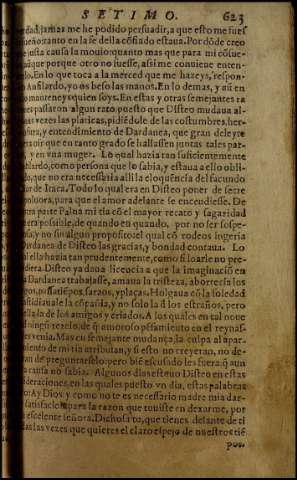 SETIMO. 623
dad, jamas me he podido persuadir, a que esto me fues
tanto en la fe della cõfiado estaua. Por dõde creo
justa causa la mouio: quanto mas que para mi cõsue
que porque otro no fuesse, assi me conuiene enten-
En lo que toca a la merced que me hazeys, respon-
Anfilardo, yo os beso las manos. En lo demas, y aũ en
y quien soys. En estas y otras semejantes ra
passaron algun rato puesto que Disteo mudaua al-
vezes las platicas, pidiẽdole de las costumbres, her-
y entendimiento de Dardanea, que gran deleyte
oir que en tanto grado se hallassen juntas tales par-
y en vna muger. Lo qual hazia tan suficientemente
como persona que lo sabia, y estaua a ello obli-
que no era necessaria alli la eloquencia del facundo
de Itaca. Todo lo qual era en Disteo poner de secre
poluora, para que el amor adelante se encendiesse. De
parte Palna mi tia cõ el mayor recato y sagaridad
possible, de quando en quando, por no ser sospe-
y no sin algun proposito: el qual cõ rodeos ingeria
Dardanea de Disteo las gracias, y bondad contaua. Lo
ella hazia tan prudentemente, como si loarle no pre-
Disteo ya daua licencia a que la imaginaciõ en
Dardanea trabajasse, amaua la tristeza, aborrecia los
saraos, y plaças. Holgaua cõ la soledad
la cõpañia, y no solo la d los estraños, pero
la de los amigos y criados. A los quales en tal nueua
rezelo, de q̃ amoroso pẽsamiento en el reynas-
venia. Mas en semejante mudança, la culpa al apar-
de mi tia atribuian, y si esto no creyeran, no de-
de preguntarselo: pero biẽ escusado les fuera, q̃ aun
causa no sabia. Algunos dias estuuo Disteo en estas
en las quales puesto vn dia, estas palabras
Ay Dios y como no te es necessario madre mia dar-
para la razon que tuuiste en dexarme, por
excelente señora. Dichosa tu, que tienes delante de ti
las vezes que quieres el claro espejo de nuestros tiẽ
pos.